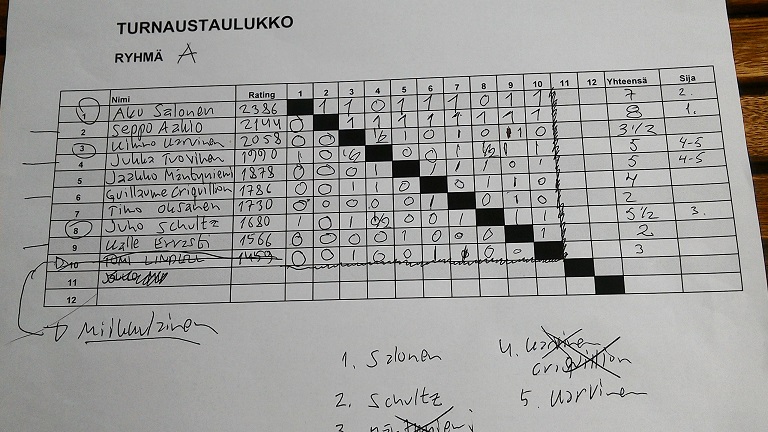 TURNAUSTAULUKKO
RYHMÄ A
Nimi Rating 1 2 3 4 5 6 7 8 9 10 11 12 Yhteensä Sija
1 Aku Salonen 2386 1 1 0 1 1 1 0 1 1 7 2.
2 Seppo 2144 0 1 1 1 1 1 1 1 1 8 1.
3 Kimmo Karvinen 2058 0 0 1/2 1 0 1 0 1 0 3 1/2
4 Jukka Tuovinen 1 0 1/2 0 5 4-5
5 Jaakko Mäntyniemi 1878 0 0 0 1 1 1 1 0 1 5 4-5
6 Guillaume Criquillion 1786 0 0 1 1 0 0 1 1 0 4
7 Timo Oksanen 1730 0 0 0 0 0 1 0 1 0 2
8 Juho Schultz 1680 1 0 1 0 0 1 1 1 5 1/2 3.
9 Kalle 1566 0 0 0 0 1 0 0 0 1 2
10 TOMI 1459 0 0 1 0 0 1 0 0 3
11
12
1. Salonen
2. Schultz
3.
4. Karvinen
Criquillion
5. Karvinen